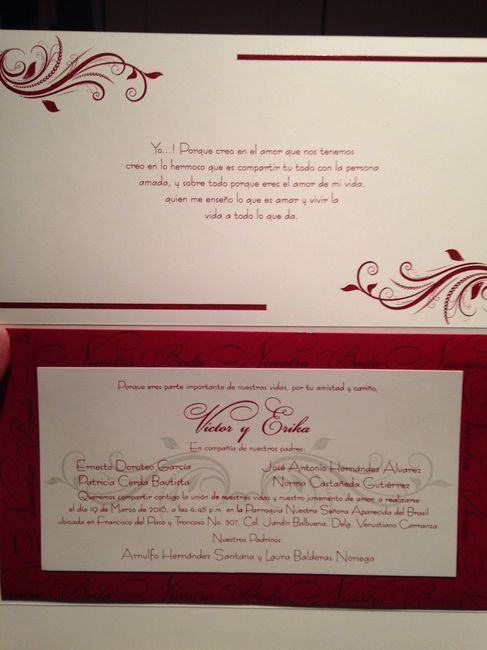 Yo...! Porque creo en el amor que nos tenemos
creo en lo hermoso que es compartir tu todo con la persona
amada, y sobre todo porque eres el amor de mi vida,
quien me enseño lo que es amar y vivir la
vida a todo lo que da.
Nuestra Boda Nuestra Boda
Porque eres parte importante de nuestras vidas, por tu amistad y cariño,
Víctor y Erika
En compañía de nuestros padres:
Ernesto Doroteo García José Antonio Hernández Álvarez
Patricia Cerda Bautista Norma Castañeda Gutiérrez
Queremos compartir contigo la unión de nuestras vidas y nuestro juramento de amor, a realizarse
el día 19 de Marzo de 2016, a las 4:45 p.m. en la Parroquia Nuestra Señora Aparecida del Brasil
ubicada en Francisco del Paso y Troncoso No. 307, Col. Jardín Balbuena, Delg. Venustiano Carranza
Nuestros Padrinos
Arnulfo Hernández Santana y Laura Balderas Noriega